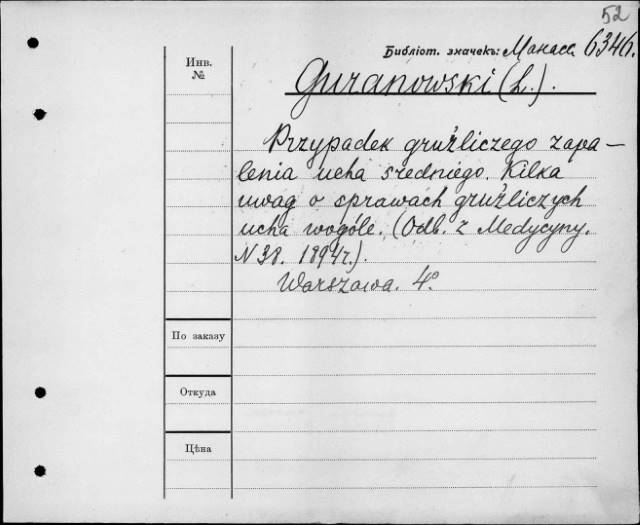 52
Библіот. значекъ: Манасс 6346.
Инв.
№
Guranowski (L.).
Przypadek gruźliczego zapa-
lenia ucha sredniego. Kilka
uwag o sprawach gruźliczych
ucha wogóle. (Odb. z Medycyny.
N 38. 1894 r.).
Warszawa. 4°.
По заказу
Откуда
Цѣна